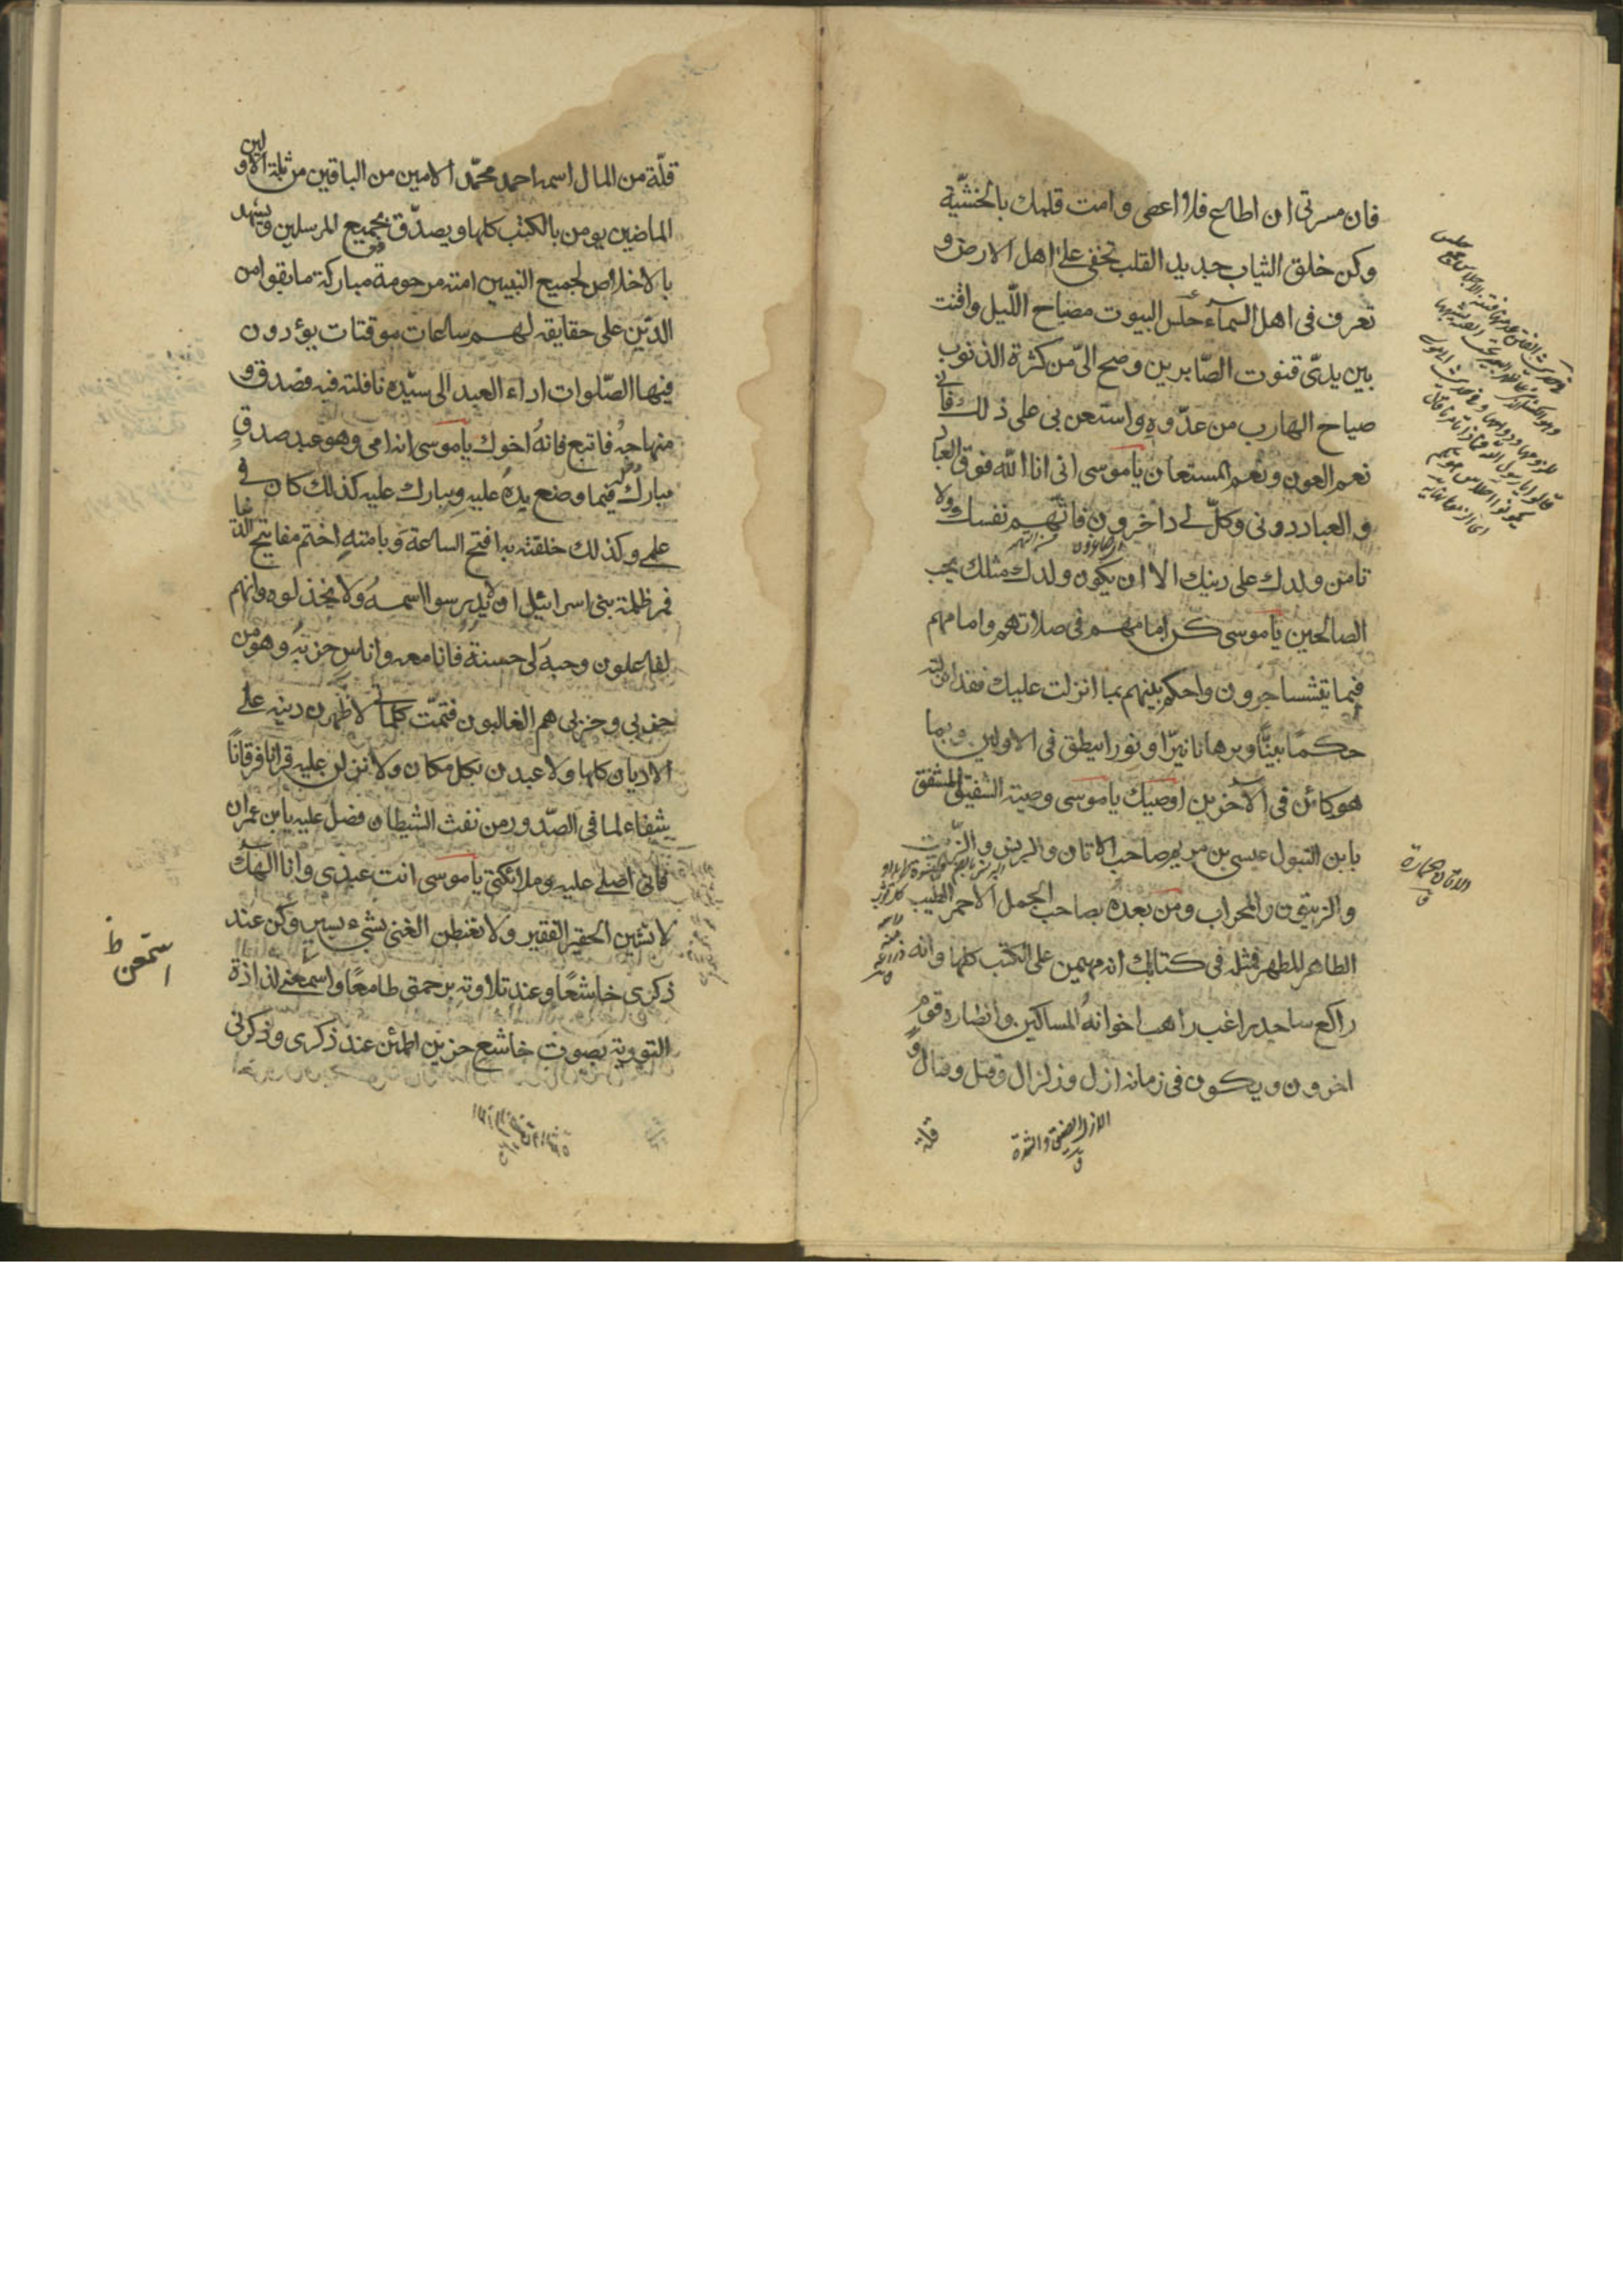 فان مسرتى ان اطاع فلا اعصى وامت قلبك بالخشية
وكن خلق الثياب جديد القلب تخفى على اهل الارض و
تعرف فى اهل السماء حلس البيوت مصباح الليل واقنت
بين يدىّ قنوت الصّابرين وصح الىّ من كثرة الذنوب
صياح الهارب من عدّوه واستعن بى على ذلك فانى
نعم العون ونعم المستعان ياموسى انى انا الله فوق العباد
والعباد دونى وكلّ لى داخرون فاتّهم نفسك ولا
تامن ولدك على دينك الا ان يكون ولدك مثلك يحب
الصالحين ياموسى كن امامهم فى صلاتهم وامامهم
فيما يتشاجرون واحكم بينهم بما انزلت عليك فقد انزلته
حكمًا بينًا وبرهانا نيرّا ونورا ينطق فى الاولين وبما
هو كائن فى الآخرين اوصيك ياموسى وصية الشفيق المشفق
بابن البتول عيسى بن مريم صاحب الاتان والبرنس والزّيت
والزيتون والمحراب ومن بعده بصاحب الجمل الاحمر الطيب
الطاهر المطهر فمثله فى كتابك انه مهيمن على الكتب كلها وانه
راكع ساجد راغب راهب اخوانه المساكين وانصاره قوم
اخرون ويكون فى زمانه ازل وزلزال وقتل وقتال و
الاتان حمارة
ق
الازل الضيق والشدة
ق
قلة
قلّة من المال اسمه احمد محمّد الامين من الباقين من ثلة الاولين
الماضين يومن بالكتب كلها ويصدّق بجميع المرسلين ويشهد
بالاخلاص لجميع النبيين امته مرحومة مباركة ما بقوا من
الدّين على حقايقه لهم ساعات موقتات يؤدون
فيها الصّلوات اداء العبد الى سيّده نافلته فبه فصدق و
منهاجه فاتبع فانه اخوك ياموسى انه امى وهو عبد صدق
مبارك له فيما وضع يده عليه ويبارك عليه كذلك كان فى
علمى وكذلك خلقته به افتح الساعة وبامته اختم مفاتيح الدنيا
فمر ظلمة بنى اسرائيل ان لا يدرسوا اسمه ولا يخذلوه وانهم
لفاعلون وحبه لى حسنة فانا معه وانا من حزبه وهو من
حزبى وحزبى هم الغالبون فتمّت كلماتى لاظهرن دينه على
الاديان كلها ولاعبدن بكل مكان ولانزلن عليه قرانا فرقانًا
شفاء لما فى الصّدور من نفث الشيطان فصل عليه يابن عمران
فانى اصلى عليه وملائكتى ياموسى انت عبدى وانا الهك
لا تستذل الحقير الفقير ولا تغبطن الغنى بشىء يسير وكن عند
ذكرى خاشعًا وعند تلاوته برحمتى طامعًا واسمعنى لذاذة
التورية بصوت خاشع حزين اطمئن عند ذكرى وذكر بى